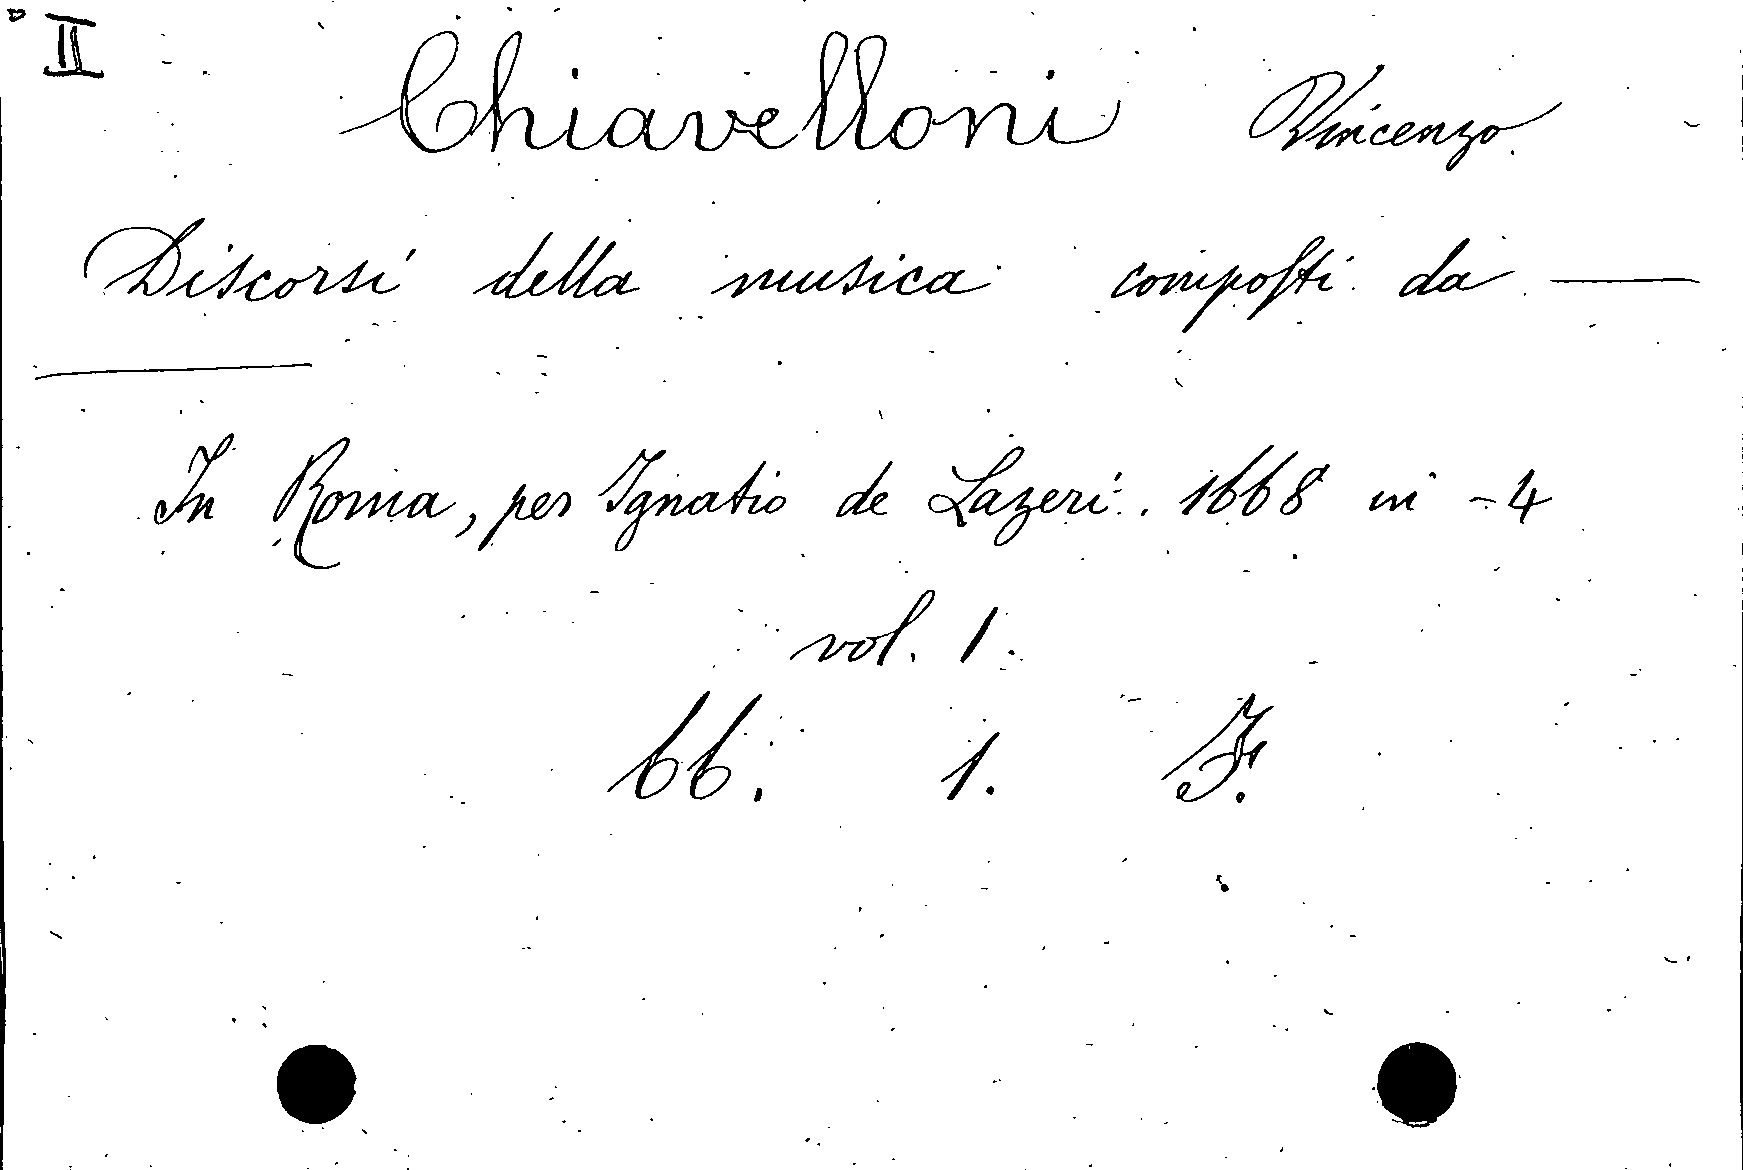 II
Chiavelloni Vincenzo
Discorsi della musica compoſti da —
—
In Roma, per Ignatio de Lazeri. 1668 in -4
vol. 1.
66. 1. F.